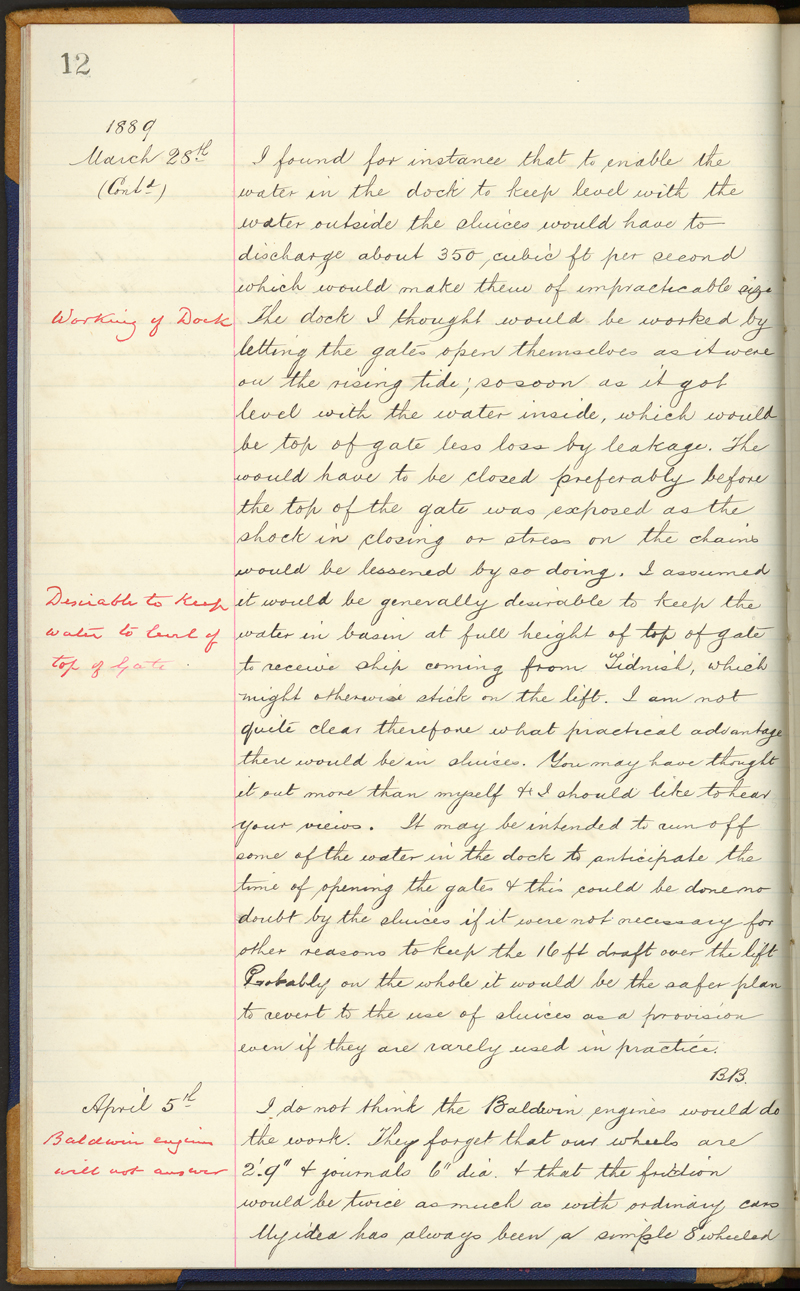 12
1889
March 28th
(Contd)
I found for instance that to enable the
water in the dock to keep level with the
water outside the sluices would have to
discharge about 350 cubic ft per second
which would make them of impracticable size
Working of Dock
The dock I thought would be worked by
letting the gates open themselves as it were
on the rising tide; so soon as it got
level with the water inside, which would
be top of gate less loss by leakage. The
would have to be closed preferably before
the top of the gate was exposed as the
shock in closing or stress on the chains
would be lessened by so doing. I assumed
Desirable to keep
water to level of
top of Gate.
it would be generally desirable to keep the
water in basin at full height of top of gate
to receive ship coming from Tidnish, which
might otherwise stick on the lift. I am not
quite clear therefore what practical advantage
there would be in sluices. You may have thought
it out more than myself & I should like to hear
your views. It may be intended to run off
some of the water in the dock to anticipate the
time of opening the gates & this could be done no
doubt by the sluices if it were not necessary for
other reasons to keep the 16 ft draft over the lift
Probably on the whole it would be the safer plan
to revert to the use of sluices as a provision
even if they are rarely used in practice.
BB.
April 5th
Baldwin engines
will not answer
I do not think the Baldwin engines would do
the work. They forget that our wheels are
2'.9" & journals 6" dia. & that the friction
would be twice as much as with ordinary cars
My idea has always been a simple 8 wheeled